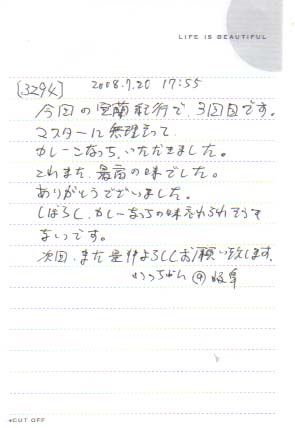 LIFE IS BEAUTIFUL
[3294] 2008.7.20 17:55
今回の室蘭紀行で、3回目です。
マスターに無理言って
カレーこなっち、いただきました。
これまた、最高の味でした。
ありがとうございました。
しばらく、カレーなっちの味忘れられそうも
ないっです。
次回、また是非よろしくお願い致します。
岐阜
CUT OFF